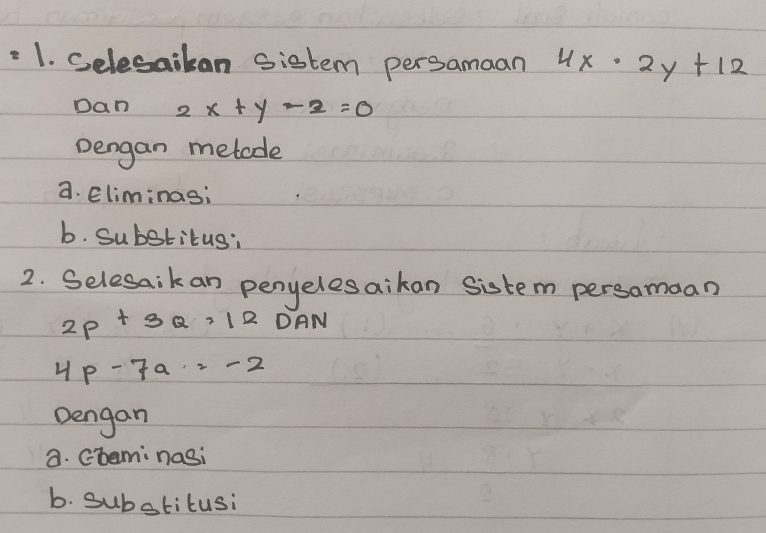 1. Selesaikan Sistem persamaan 4x = 2y + 12
Dan 2x + y - 2 = 0
Dengan metode
a. Eliminasi
b. Substitusi
2. Selesaikan penyelesaikan Sistem persamaan
2p + 3Q = 12 DAN
4p - 7a = -2
Dengan
a. Eleminasi
b. Substitusi